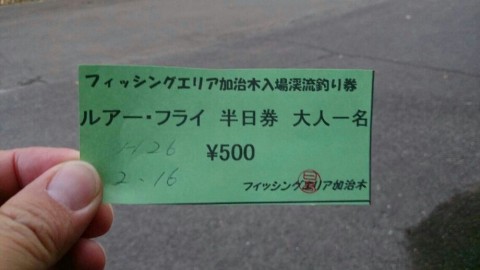 フィッシングエリア加治木入場渓流釣り券
ルアー・フライ 半日券 大人一名
¥500
2.16
フィッシングエリア加治木